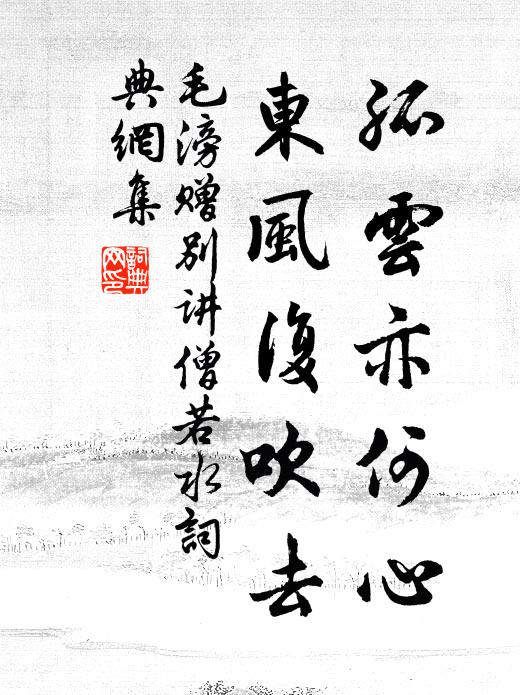 孤雲亦何心
東風復吹去
毛滂贈別讲僧若水詞
典網集
詞典網印